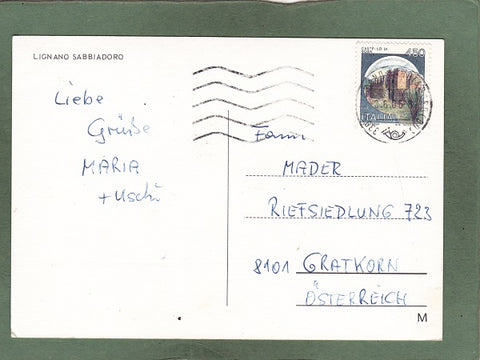 LIGNANO SABBIADORO
Liebe
Grüße
MARIA
+ Uschi
450
ITALIA
Fam.
MADER
RIEFSIEDLUNG 723
8101 GRATKORN
ÖSTERREICH
M